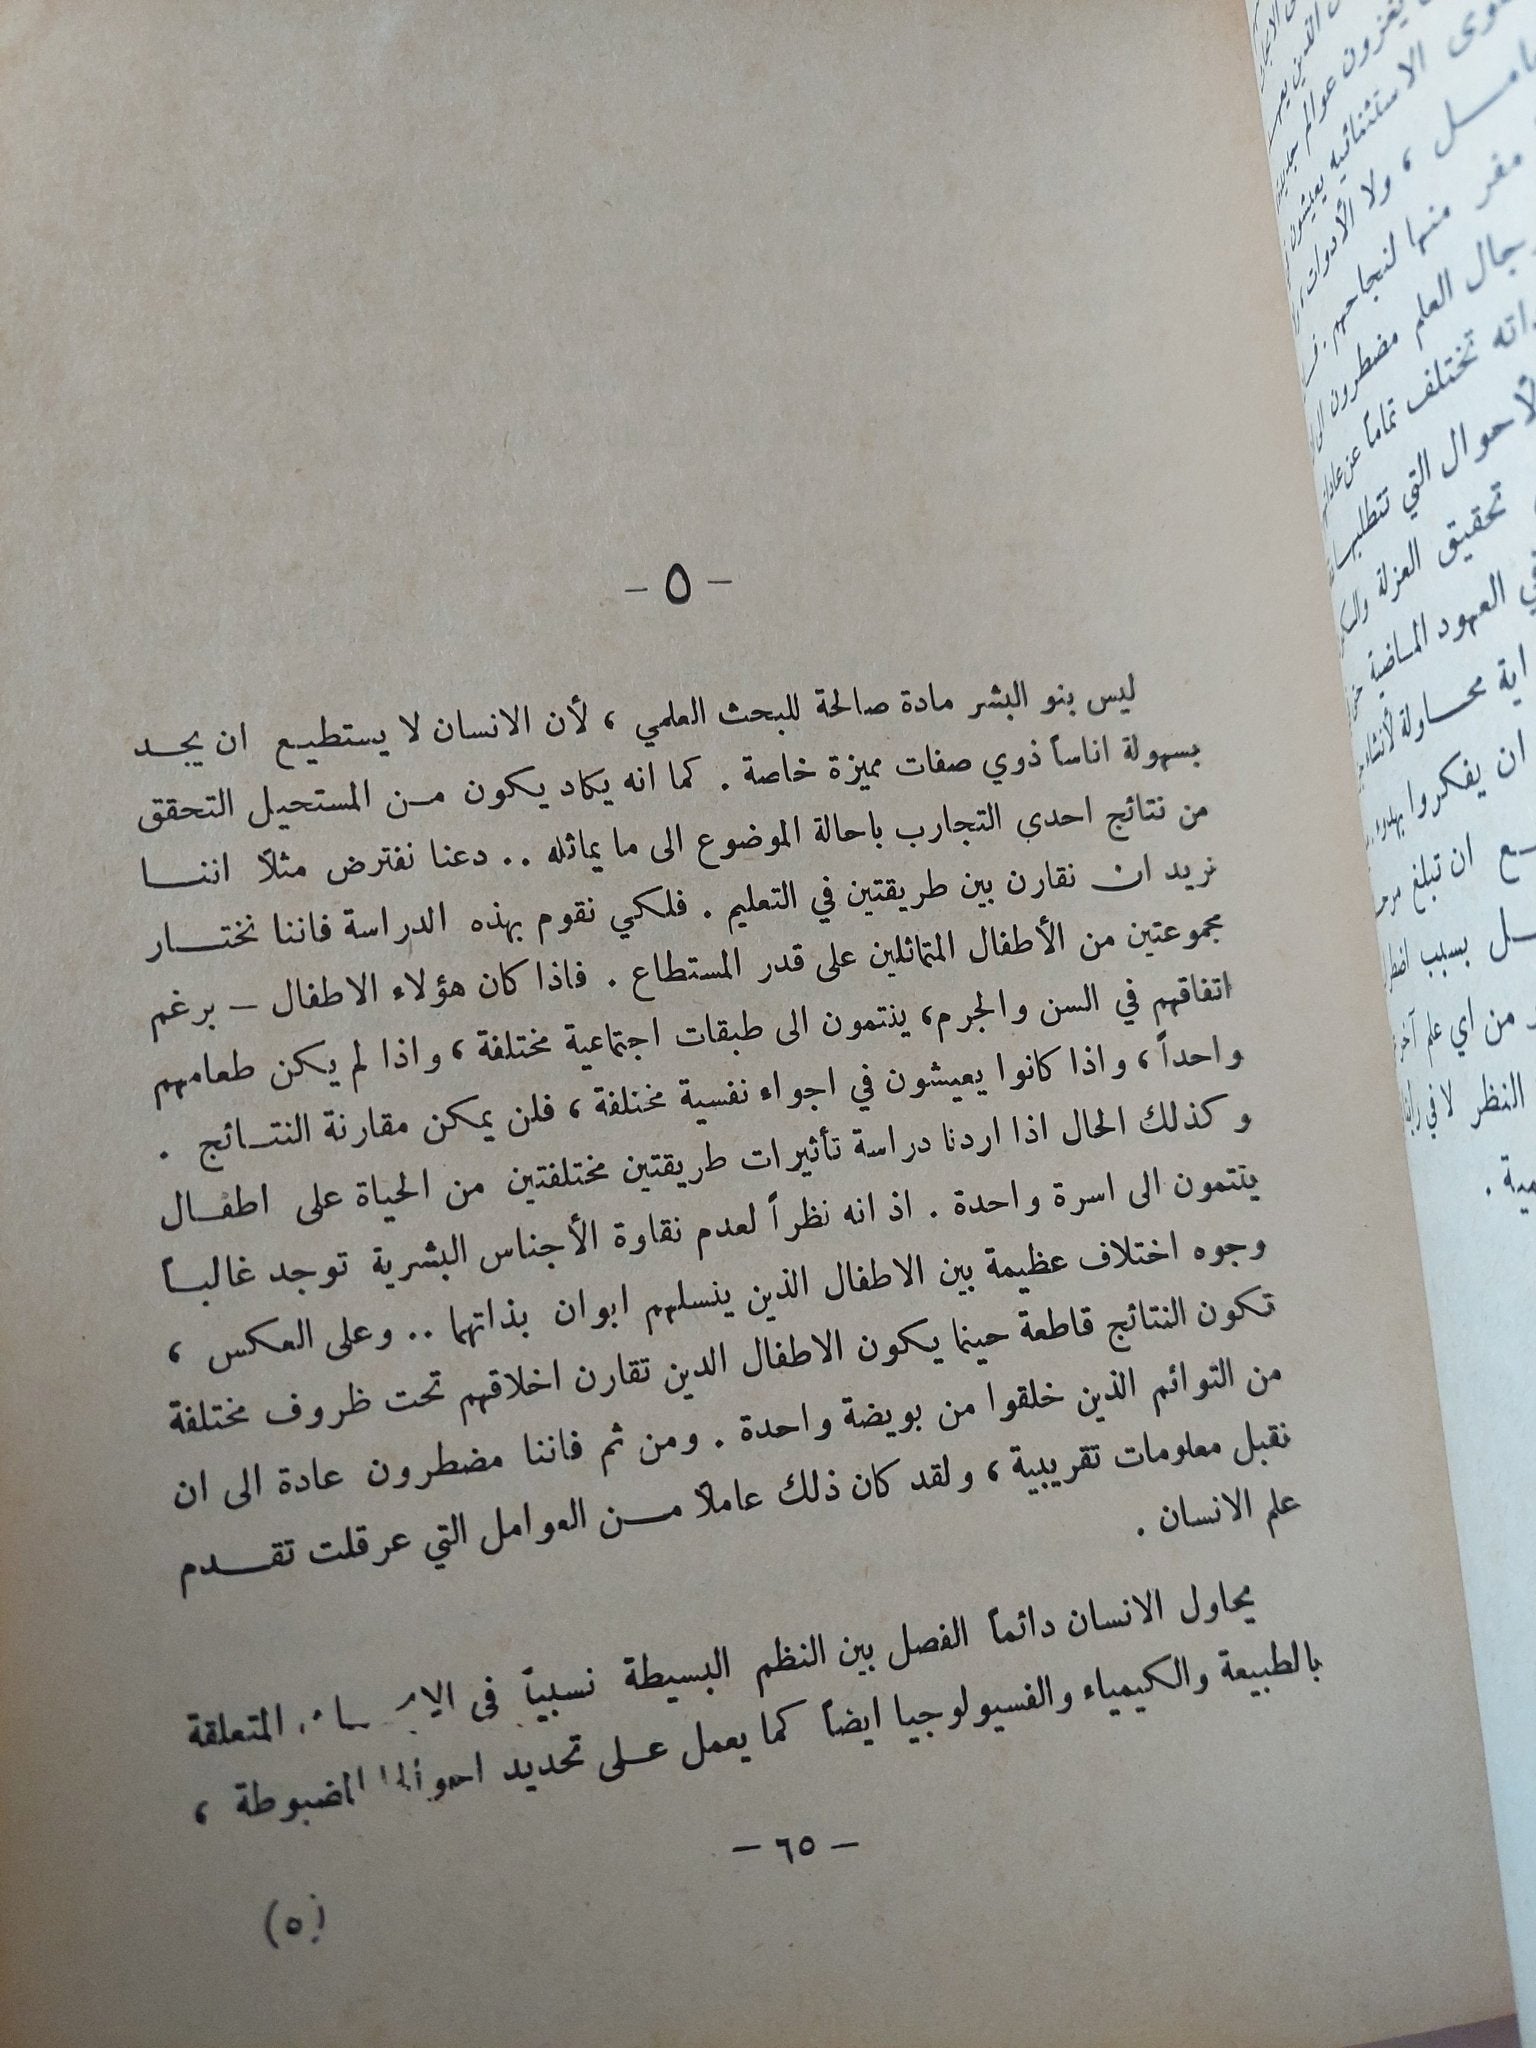 - ٥ -
ليس بنو البشر مادة صالحة للبحث العلمي ، لأن الانسان لا يستطيـع ان يجـد
بسهولة اناساً ذوي صفات مميزة خاصة . كما انه يكاد يكون مـن المستحيل التحقق
من نتائج احدى التجارب باحالة الموضوع الى ما يماثله .. دعنا نفترض مثلاً اننـا
نريد ان نقارن بين طريقتين في التعليم . فلكي نقوم بهذه الدراسة فاننا نختـار
مجموعتين من الأطفال المتماثلين على قدر المستطاع . فاذا كان هؤلاء الاطفال – برغم
اتفاقهم في السن والجرم، ينتمون الى طبقات اجتماعية مختلفة ، واذا لم يكن طعامهم
واحداً ، واذا كانوا يعيشون في اجواء نفسية مختلفة ، فلن يمكن مقارنة النتـائج .
وكذلك الحال اذا اردنا دراسة تأثيرات طريقتين مختلفتين من الحياة على اطفـال
ينتمون الى اسرة واحدة . اذ انه نظراً لعدم نقاوة الأجناس البشرية توجد غالبـاً
وجوه اختلاف عظيمة بين الاطفال الذين ينسلهم ابوان بذاتهما .. وعلى العكس ،
تكون النتائج قاطعة حينما يكون الاطفال الدين تقارن اخلاقهم تحت ظروف مختلفة
من التوائم الذين خلقوا من بويضة واحدة . ومن ثم فاننا مضطرون عادة الى ان
نقبل معلومات تقريبية ، ولقد كان ذلك عاملاً مـن العوامل التي عرقلت تقـدم
علم الانسان .
يحاول الانسان دائماً الفصل بين النظم البسيطة نسبياً في المتعلقة
بالطبيعة والكيمياء والفسيولوجيا ايضاً كما يعمل علـى تحديد المضبوطة ،
- ٦٥ -
(٥)
يغزون عوالم
الاستثنائية يعيشون
ولا الأدوات
مفر منها لنجاحهم .
العلم مضطرون
تختلف تماماً عن
التي
تحقيق العزلة
العهود المـاضية
اية محـاولة
ان يفكروا
ان تبلغ
بسبب
من اي علم
النظر لا في